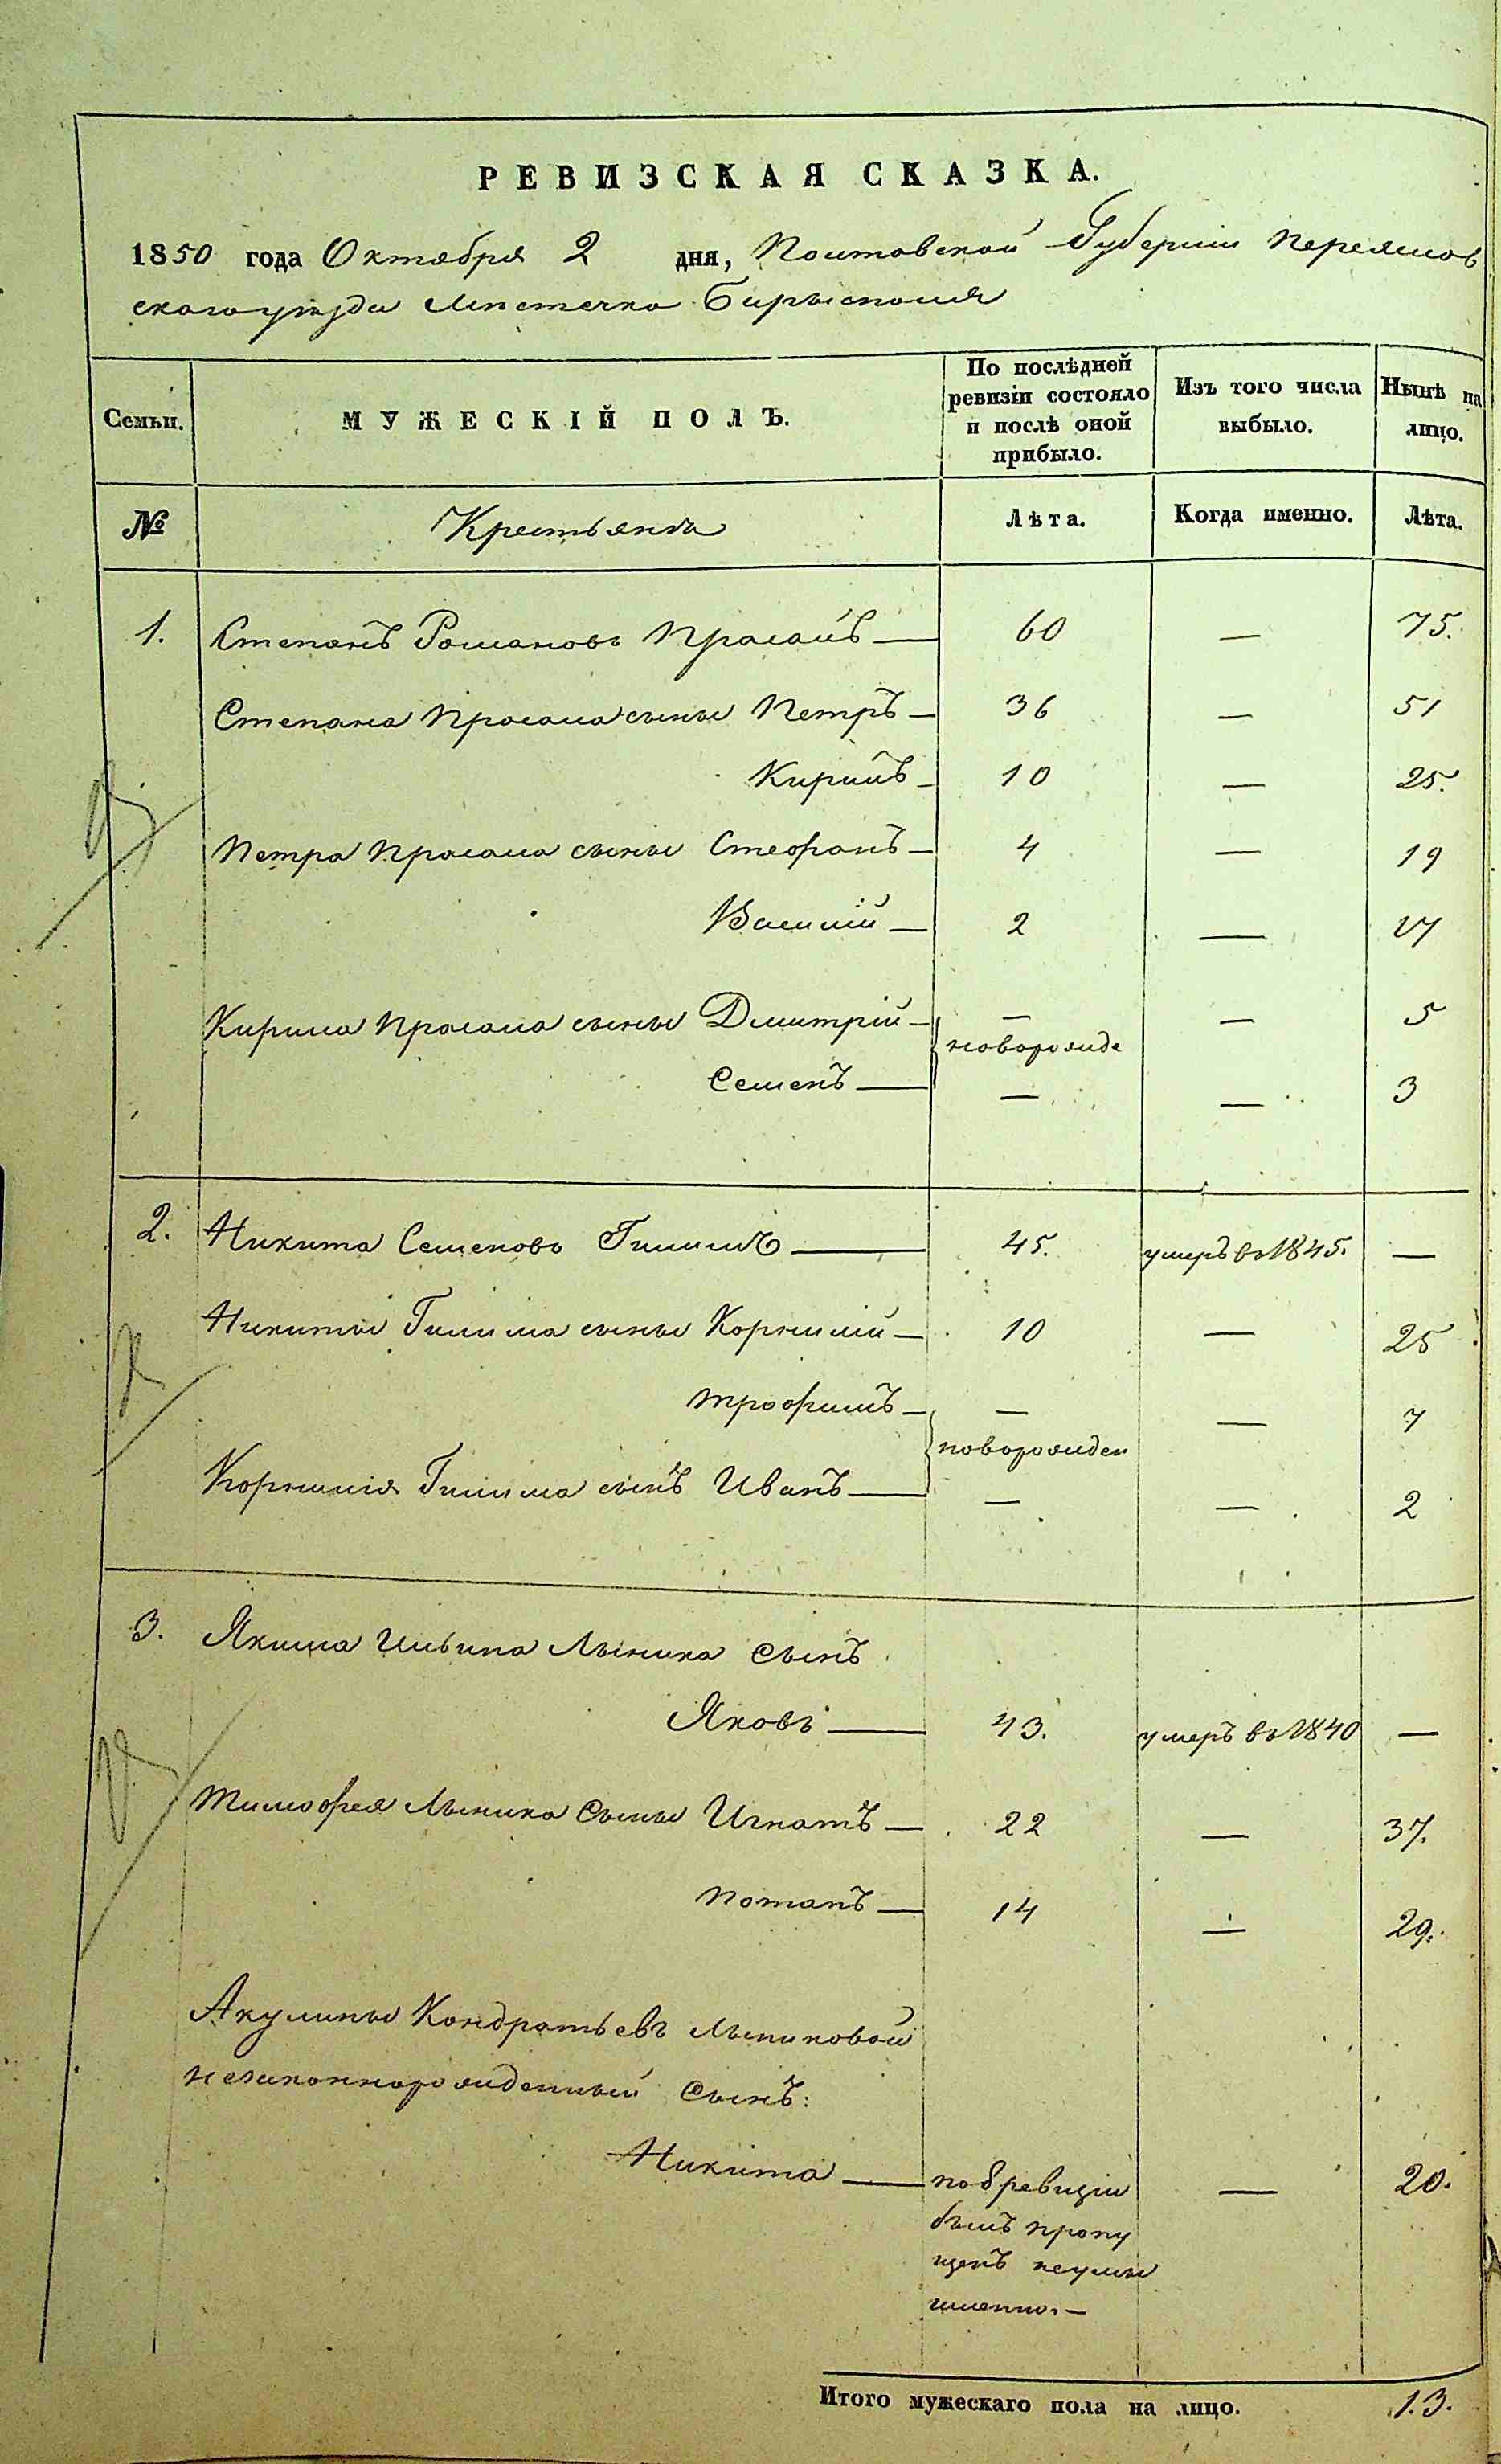 РЕВИЗСКАЯ СКАЗКА.
1850 года Октября 2 дня, Полтавской Губерніи Переяслов
скаго уѣзда мѣстечка Барысполя
Семьи. МУЖЕСКІЙ ПОЛЪ. По послѣдней ревизіи состояло и послѣ оной прибыло. Изъ того числа выбыло. Нынѣ на лицо.
№ Крестьянъ Лѣта. Когда именно. Лѣта.
1. Степанъ Романовъ — 60 — 75.
Степана сыны Петръ — 36 — 51
Кирилъ — 10 — 25.
Петра сыны Стефанъ — 4 — 19
Василій — 2 — 17
Кирила сыны Дмитрій — — — 5
новорожде
Семенъ — — — 3
2. Никита Семеновъ — 45. умеръ въ 1845. —
Никиты сыны Корнилій — 10 — 25
Трофимъ — — — 7
новорожден
Корнилія сынъ Иванъ — — — 2
3. Якима Ильина Лысика Сынъ
Яковъ — 43. умеръ въ 1840 —
Тимофея Лысика Сыны Игнатъ — 22 — 37.
Потапъ — 14 — 29.
Акулины Кондратьевъ Лысиковой
незаконнорожденный Сынъ:
Никита — по 8 ревизіи — 20.
былъ пропу
щенъ неумы
шленно. —
Итого мужескаго пола на лицо. 13.